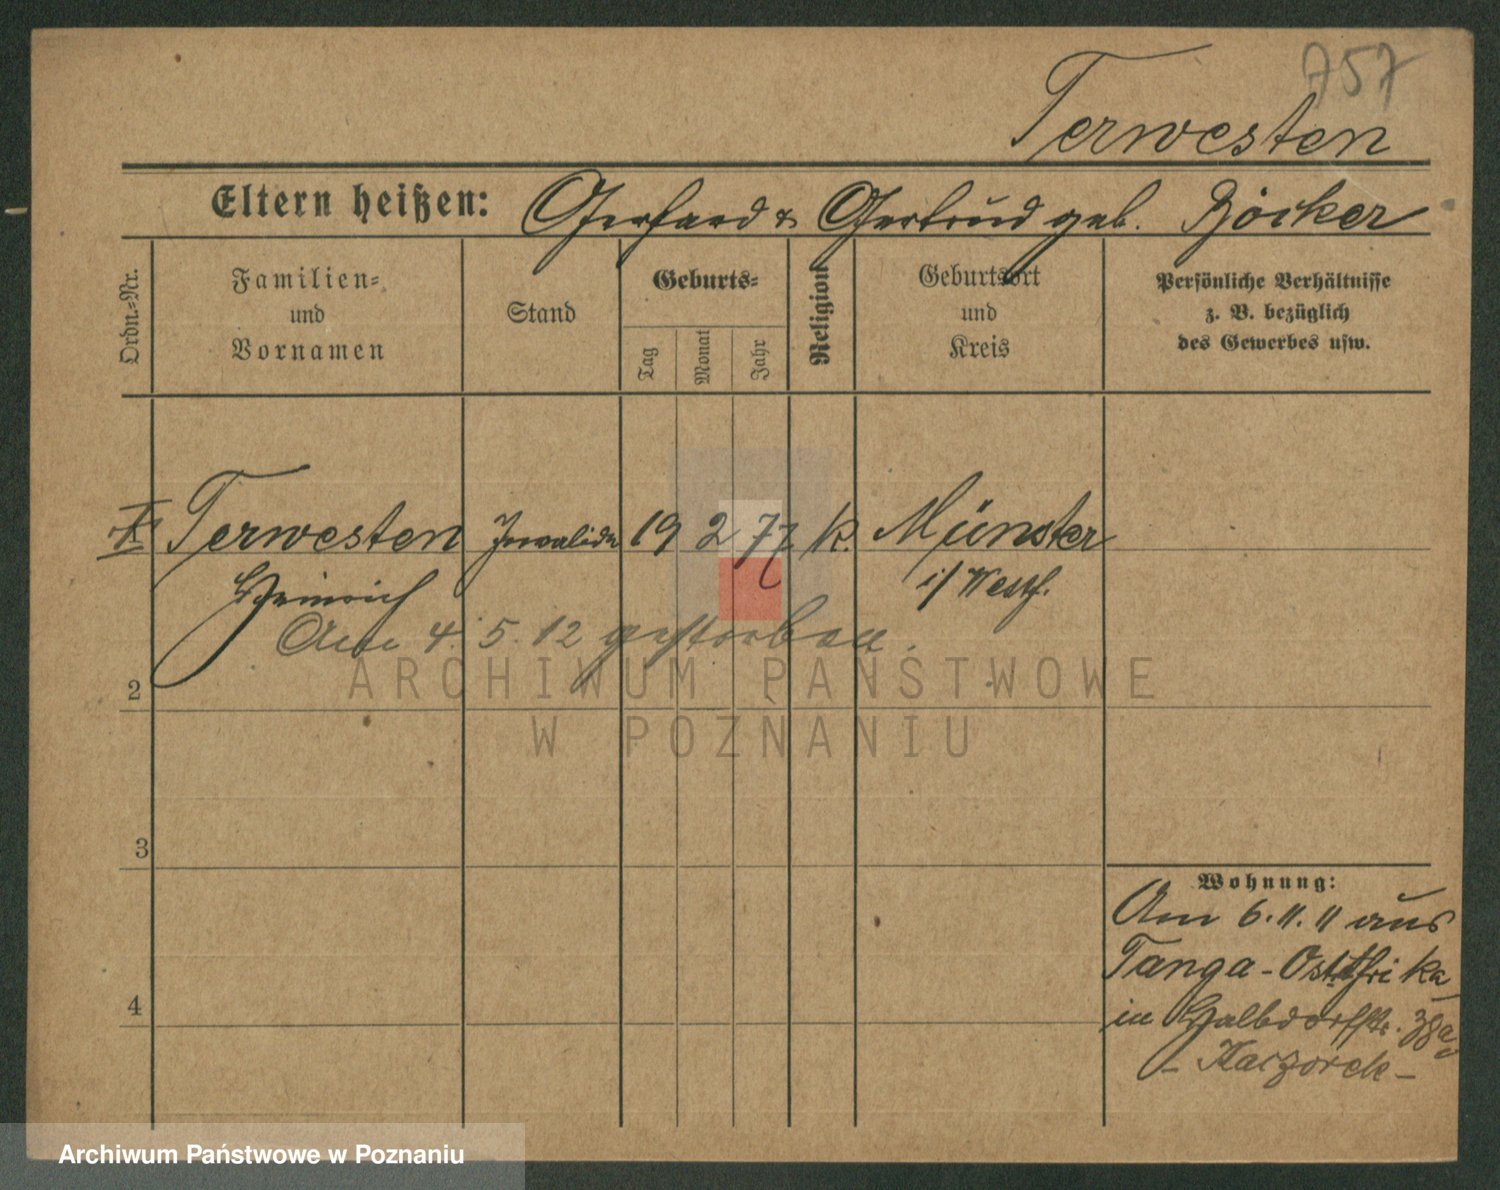 757
Terwesten
Eltern heißen: Gerhard & Gertrud geb. Böcker
Ordn.=Nr.
Familien=
und
Vornamen
Stand
Geburts=
Tag
Monat
Jahr
Religion
Geburtsort
und
Kreis
Persönliche Verhältnisse
z. B. bezüglich
des Gewerbes usw.
Terwesten Invalide 19 2 77 k. Münster
Heinrich i/ Westf.
Am 4. 5. 12 gestorben.
2
3
4
Wohnung:
Am 6. 11. 11 aus
Tanga - Ostafrika
in Halbdorfstr.
- Kaczorek -
ARCHIWUM PAŃSTWOWE
W POZNANIU
Archiwum Państwowe w Poznaniu